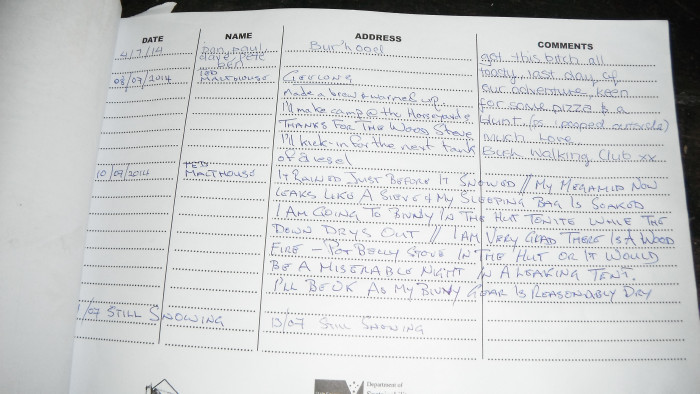 DATE NAME ADDRESS COMMENTS
4/7/14 Dan, paul, Bur'hood got this bitch all
dave, Pete toasty last day of
ben our adventure, keen
08/07/2014 TED MALTHOUSE GEELONG for some pizza & a
made a brew & warmed up. blunt (ps i pooped outside)
I'll make camp @ the Horseyards Much Love
THANKS FOR THE WOOD STOVE Bush Walking Club xx
I'll kick-in for the next tank
of diesel
10/07/2014 TED MALTHOUSE IT RAINED JUST BEFORE IT SNOWED // MY MEGAMID NOW
LEAKS LIKE A SIEVE & MY SLEEPING BAG IS SOAKED
I AM GOING TO BIVVY IN THE HUT TONITE WHILE THE
DOWN DRYS OUT // I AM VERY GLAD THERE IS A WOOD
FIRE – POT BELLY STOVE IN THE HUT OR IT WOULD
BE A MISERABLE NIGHT IN A LEAKING TENT.
I'LL BE OK AS MY BIVVY GEAR IS REASONABLY DRY
/07 STILL SNOWING 13/07 STILL SNOWING
Department of